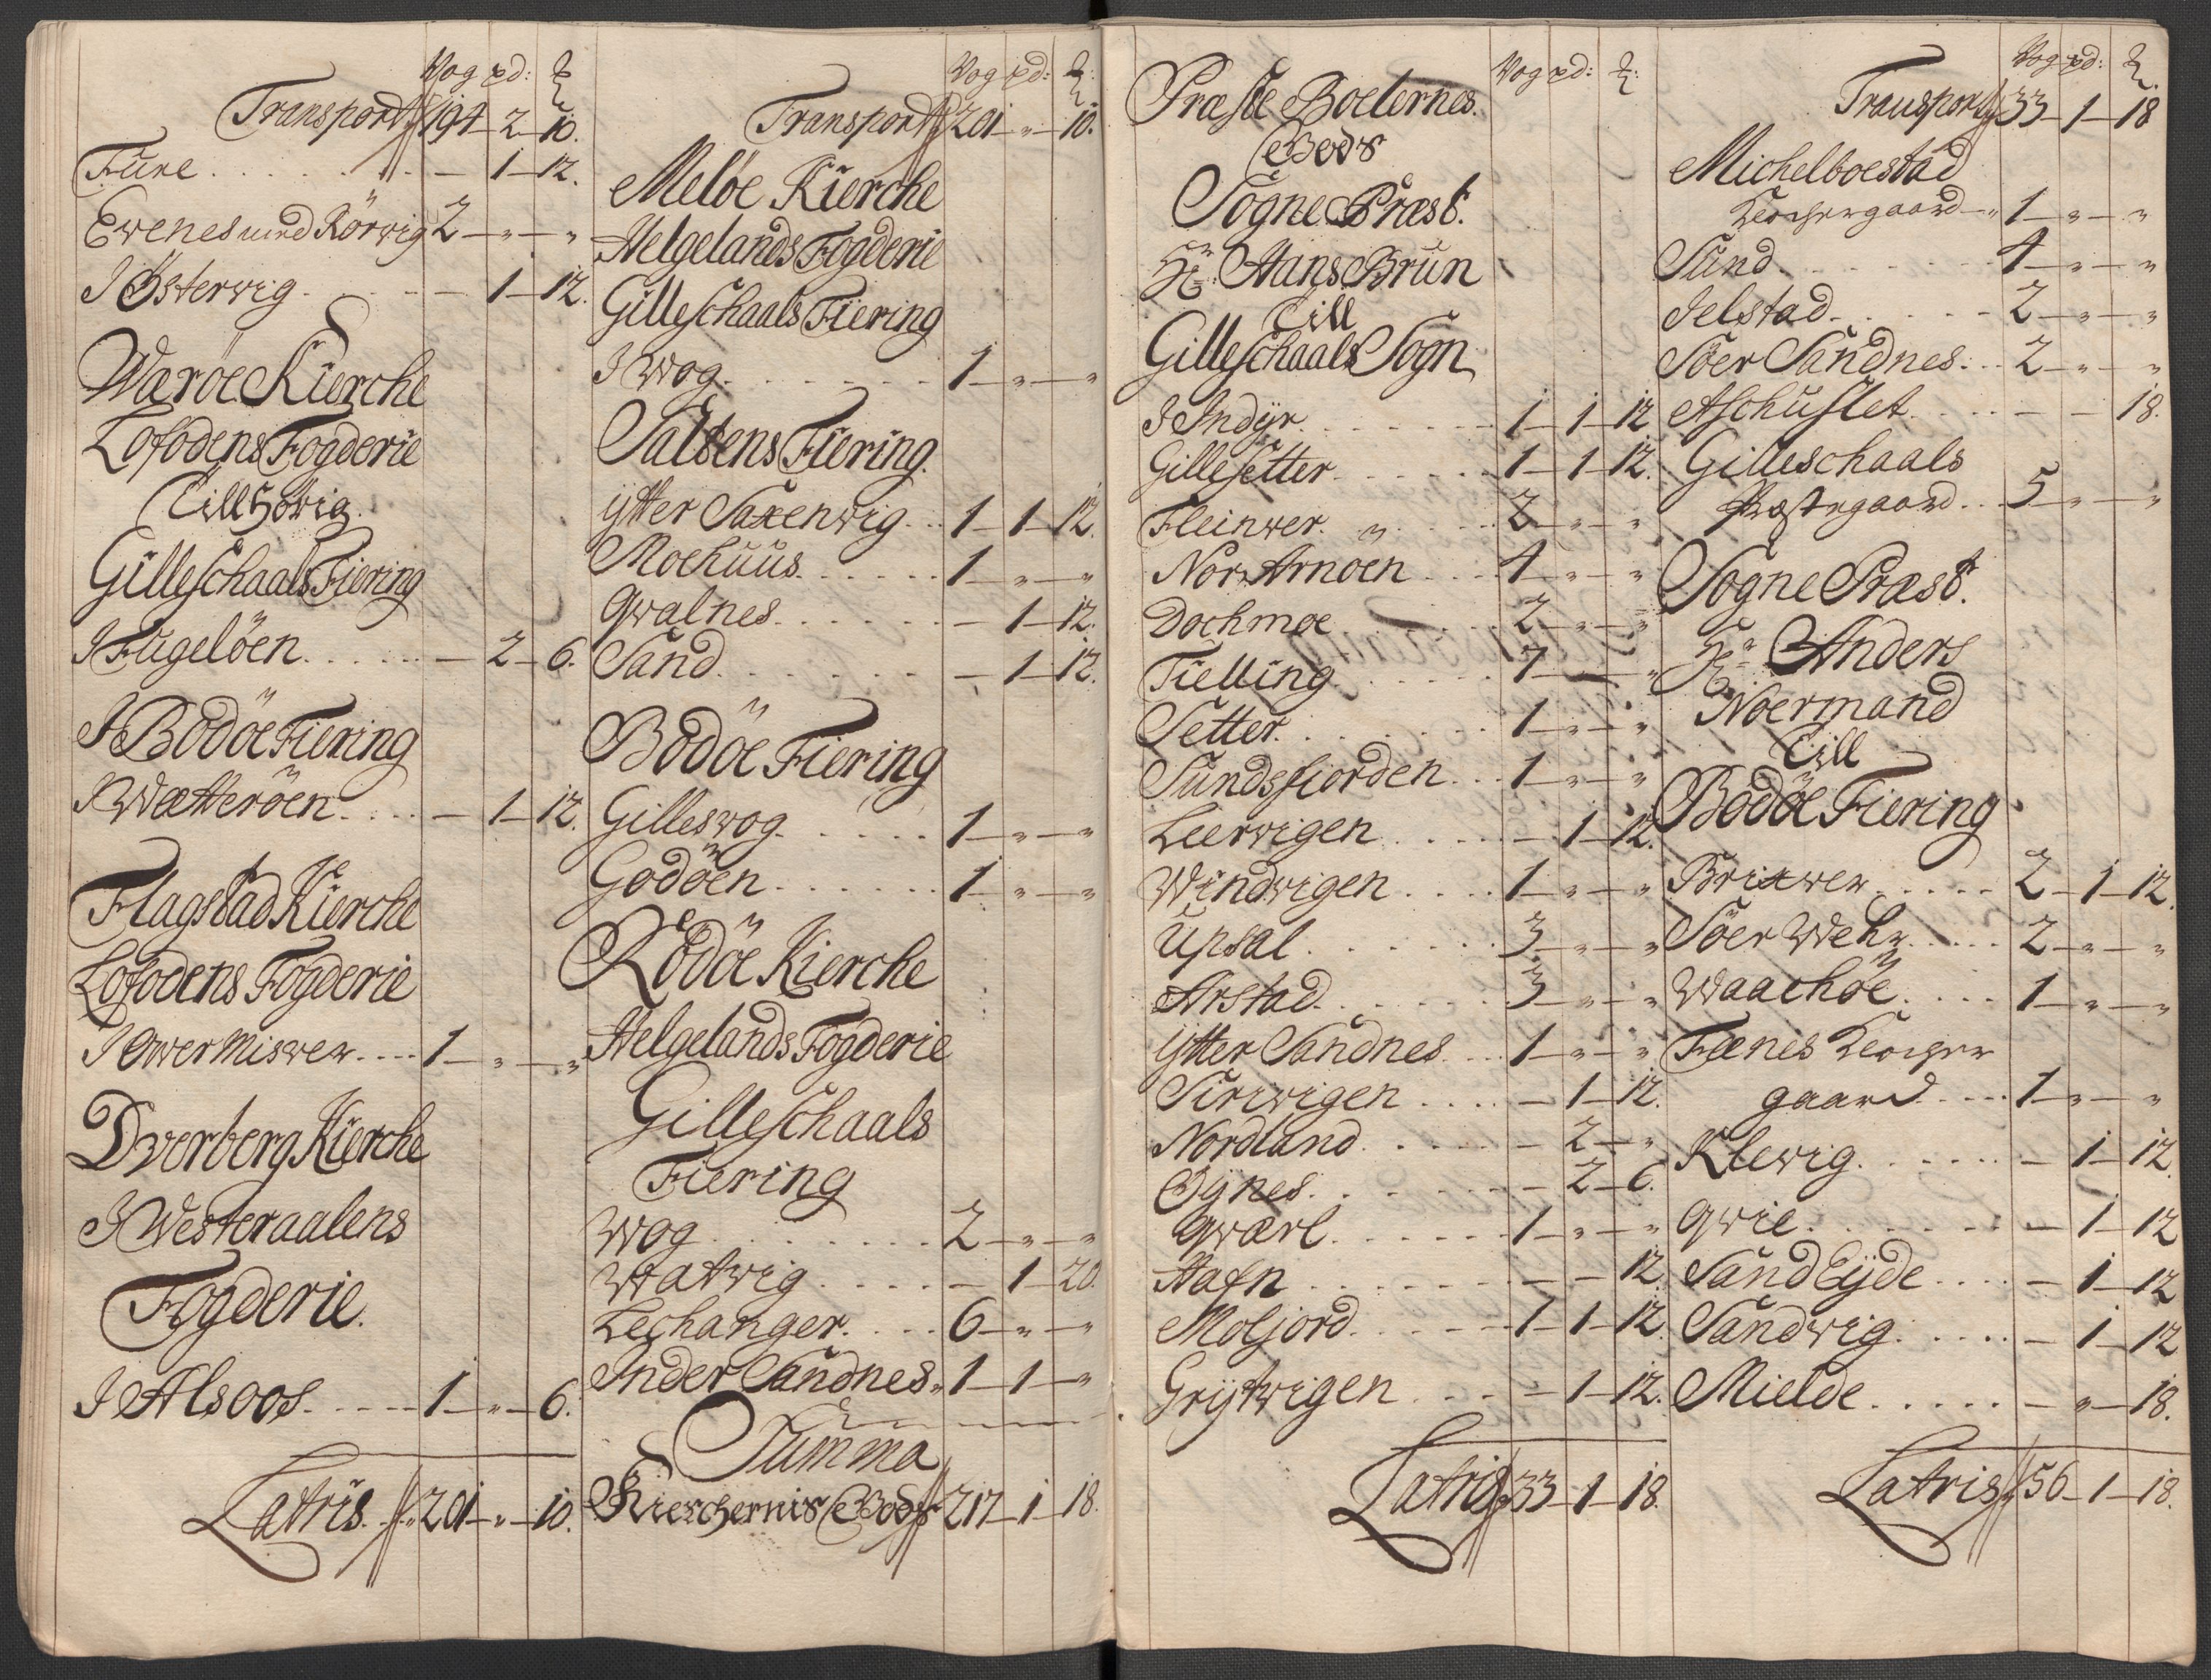 Vog pd: ℔
Transport 194 — 2 — 10.
Fure . . . . . . — 1 — 12.
Evenes med Rörvig 2 — „ — „
I Östervig . . . — 1 — 12.
Waröe Kierche
Lofodens Fogderie
Till hörig
Gilleschaals Fiering
I Fugelöen . . . . . — 2 — 6.
I Bodöe Fiering
I Wætteröen . . . . — 1 — 12.
Flagstad Kierche
Lofodens Fogderie
I Ower Miswer . . . . 1 — „ — „
Dverberg Kierche
I Westeraalens
Fogderie.
I Alsoos . . . . . 1 — „ — 6.
Latris 201 — „ — 10.
Vog pd: ℔
Transport 201 — „ — 10.
Meløe Kierche
Helgelands Fogderie
Gilleschaals Fiering
I Wog . . . . . . . 1 — „ — „
Saltens Fiering.
ytter Saxenvig . . . 1 — 1 — 12.
Moehuus . . . . . . 1 — „ — „
Qvalnes . . . . . . — 1 — 12.
Sand . . . . . . . — 1 — 12.
Bodöe Fiering
Gilleswog . . . . . 1 — „ — „
Godöen . . . . . . 1 — „ — „
Rödöe Kierche
Helgelands Fogderie
Gilleschaals
Fiering
Wog . . . . . . . 2 — „ — „
Watvig . . . . . — 1 — 20.
Lechanger . . . . 6 — „ — „
Inder Sandnes „ 1 — 1 — „
Summa
Kierchernis Bods 217 — 1 — 18.
Vog pd: ℔
Præste Boelernes.
Bods
Sogne Præst.
Hr. Hans Brun
Till
Gilleschaals Sogn
I Indyr . . . . . . 1 — 1 — 12
Gillesetter . . . . . 1 — 1 — 12.
Fleinver . . . . . 2 — „ — „
Nor Arnöen . . . . 4 — „ — „
Dochmoe . . . . . 2 — „ — „
Tielling . . . . . 7 — „ — „
Setter . . . . . . 1 — „ — „
Sundsfiorden . . . 1 — „ — „
Leervigen . . . . — 1 — 12.
Windvigen . . . . 1 — „ — „
Upsal . . . . . . 3 — „ — „
Arstad . . . . . . 3 — „ — „
ytter Sandnes . . . 1 — „ — „
Tirivigen . . . . — 1 — 12.
Nordland . . . . . — 2 — „
Øynes . . . . . . — 2 — 6.
Qværl . . . . . . 1 — „ — „
Hafn . . . . . . — — 12
Moljord . . . . . 1 — 1 — 12.
Grytvigen . . . . — 1 — 12.
Latris 33 — 1 — 18.
Vog pd: ℔
Transport 33 — 1 — 18
Michelboestad
Kerchergaard — „ 1 — „ — „
Sund . . . . . . 4 — „ — „
Jelstad . . . . . 2 — „ — „
Söer Sandnes . . . 2 — „ — „
Aschuslet . . . . — — 18.
Gilleschaals
Præstegaard . . . 5 — „ — „
Sogne Præst.
Hr. Anders
Noermand
Till
Bodöe Fiering
Brixwer . . . . . 2 — 1 — 12.
Söer Wehr . . . . 2 — „ — „
Waachöe . . . . . 1 — „ — „
Fænes Kercher
gaard . . . . 1 — „ — „
Klevig . . . . . . — 1 — 12.
Qvie . . . . . . — 1 — 12
Sand Eyde . . . . — 1 — 12
Sandvig . . . . . — 1 — 12
Mielde . . . . . — „ — 18.
Latris 56 — 1 — 18.